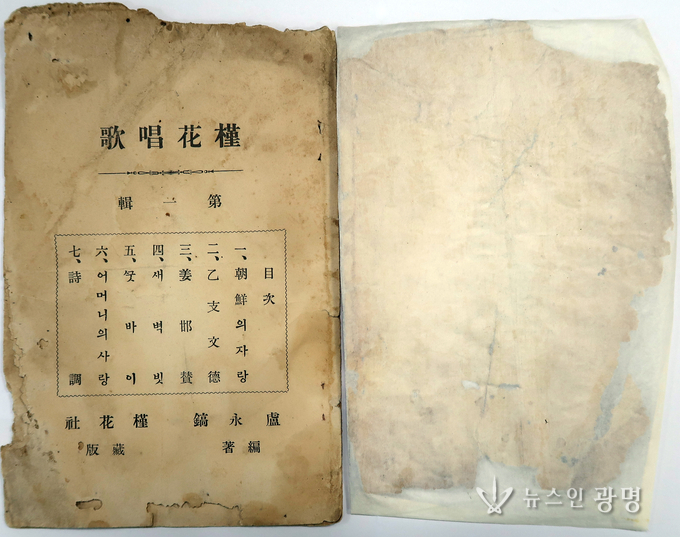 槿花唱歌
第一輯
目次
一、朝鮮의자랑
二、乙支文德
三、姜邯賛
四、새벽빗
五、바이
六、어머니의사랑
七、詩調
盧永鎬
編著
槿花社
藏版
뉴스인 광명